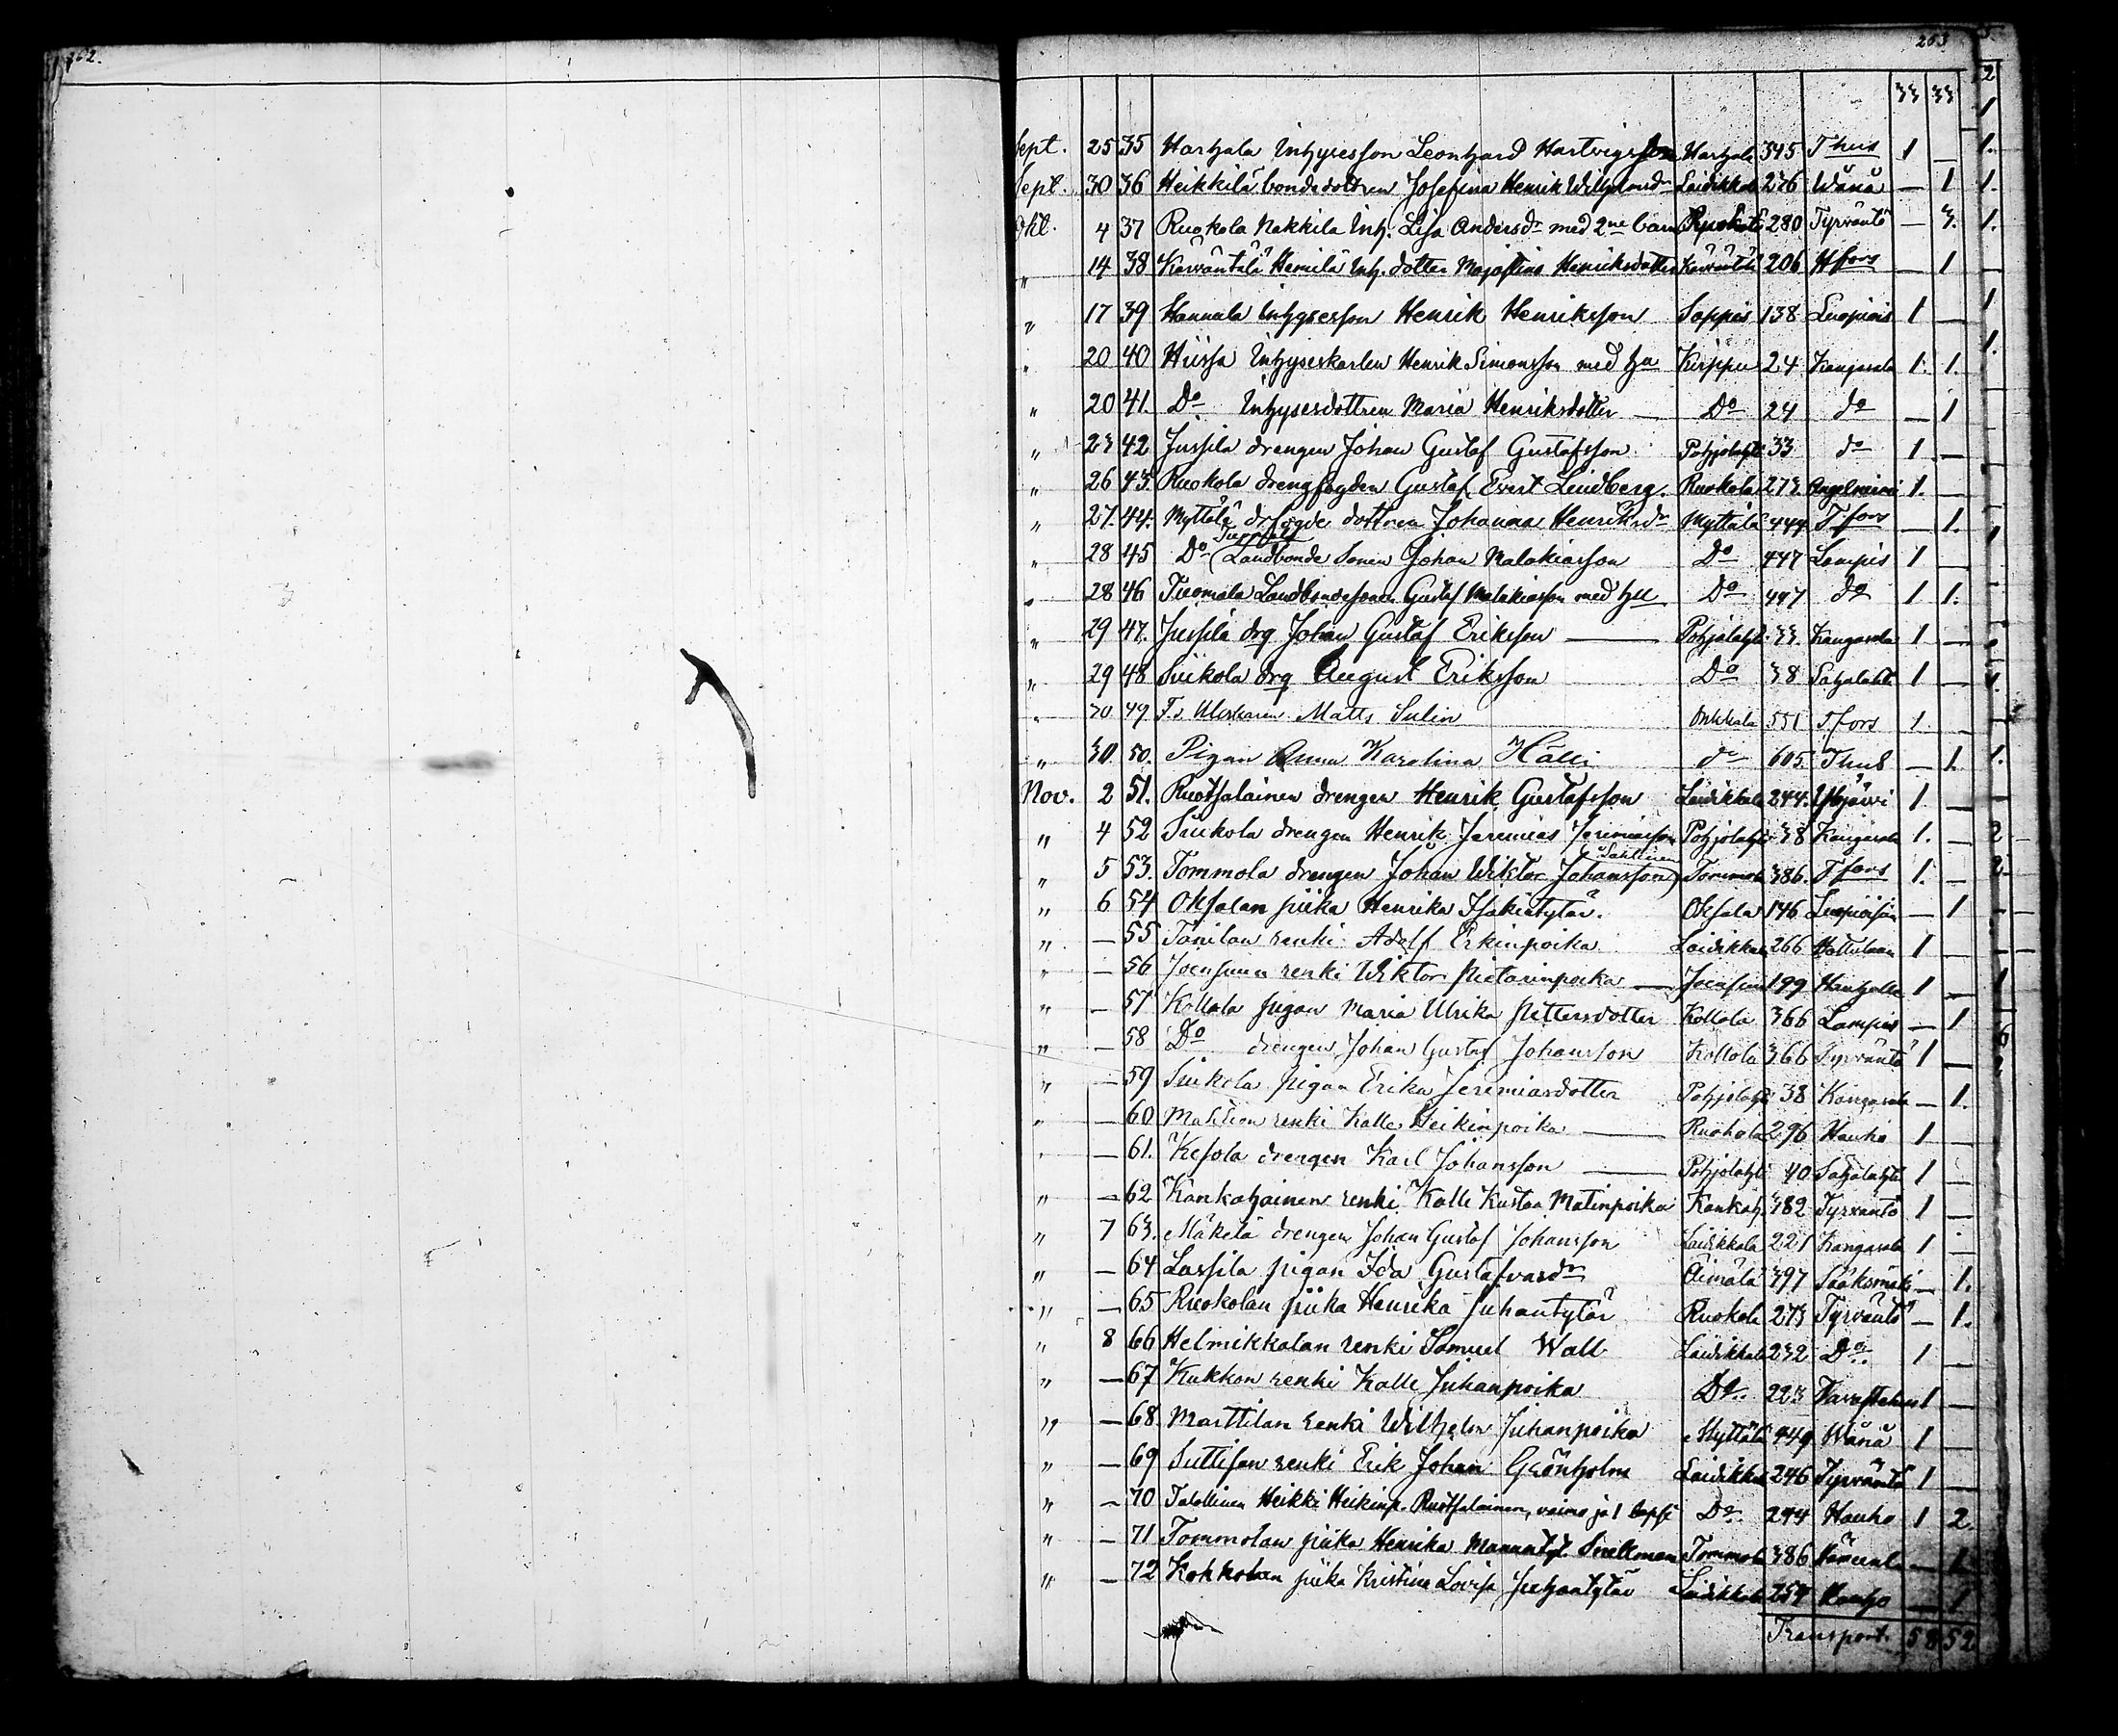 262.
263
Sept. 25 35 Harhala Inhysesson Leonhard Hartvigsson Harhala 345 Thus 1 —
Sept. 30 36 Heikkilä bondedottren Josefina Henrik Wilhelmsdr Laidikkala 276 Wånå — 1
Okt. 4 37 Ruokola Nakkila Inh. Lisa Andersdr med 2ne barn Ruokola 280 Tyrväntö — 3.
" 14 38 Kärväntälä Hemilä Inh. dotter Maja Stina Henriksdotter Kärväntälä 206 Hfors — 1
" 17 39 Hannula Inhysesson Henrik Henriksson Sappis 138 Luopiois 1 —
" 20 40 Hiissa Inhyseskarlen Henrik Simonsson med hu Kirppu 24 Kangasala 1. 1.
" 20 41. Do Inhysesdottren Maria Henriksdotter — Do 24 do — 1
" 23 42 Jussila drengen Johan Gustaf Gustafsson Pohjolahti 33 do 1 —
" 26 43. Ruokola drengfogden Gustaf Evert Lindberg. Ruokola 273. Angelniemi 1. —
" 27. 44. Myttälä drfogde dottren Johanna Henriksdr Myttälä 444 Tfors — 1.
" 28 45 Do Landbonde Sonen Johan Malakiasson Do 447 Lampis 1 —
" 28 46 Tuomala Landbondesonen Gustaf Malakiasson med hu Do 447 do 1 1.
" 29 47. Jussila drg Johan Gustaf Eriksson — Pohjolahti 33. Kangasala 1 —
" 29 48 Siukola drg August Eriksson Do 38 Sahalahti 1 —
" 30 49 Fd Matts Sulin Onkkala 551 Tfors 1
" 30 50. Pigan Anna Karolina Hälli do 605. Thus — 1.
Nov. 2 51. Ruotsalainen drengen Henrik Gustafsson Laidikkala 244. Urjäwi 1 —
" 4 52 Siukola drengen Henrik Jeremias Jeremiasson Pohjolahti 38 Kangasala 1. —
Sahlman
" 5 53. Tommola drengen Johan Wiktor Johansson) Tommola 386. Tfors 1. —
" 6 54 Oksalan piika Henrika Isakintytär. Oksala 146 Luopioisiin — 1
" — 55 Tanilan renki Adolf Erkinpoika Laidikkala 266 Hattulaan 1
" — 56 Joensuun renki Wiktor Pietarinpoika — Joensuu 199 Hauholle 1 —
" — 57 Kollola pigan Maria Ulrika Pettersdotter Kollola 366 Lampis — 1
" — 58 Do drengen Johan Gustaf Johansson Kollola 366 Tyrväntö 1 —
" — 59 Siukola pigan Erika Jeremiasdotter Pohjolahti 38 Kangasala — 1.
" — 60 renki Kalle Heikinpoika — Ruokola 296 Hauho 1 —
" — 61. Kesola drengen Karl Johansson — Pohjolahti 40 Sahalahti 1 —
" — 62 Kankahainen renki Kalle Kustaa Matinpoika Kankah. 382 Tyrväntö 1 —
" 7 63. Mäkelä drengen Johan Gustaf Johansson Laidikkala 221 Kangasala 1 —
" — 64 Lassila pigan Ida Gustafvasdr Äimälä 397 Sääksmäki — 1.
" — 65 Ruokolan piika Henrika Juhantytär Ruokola 273 Tyrväntö — 1.
" 8 66 Helmikkalan renki Samuel Wall Laidikkala 232 Do. 1 —
" — 67 Kukkon renki Kalle Juhanpoika Do. 223 1 —
" — 68. Marttilan renki Wilhelm Juhanpoika Myttälä 449 Wånå 1 —
" — 69 Suttisen renki Erik Johan Grönholm Laidikkala 246 Tyrväntö 1 —
" — 70 Talollinen Heikki Heikinp. Ruotsalainen, vaimo ja 1 lapsi Do. 244 Hauho 1 2.
" — 71 Tommolan piika Henrika Mananty. Snellman Tommola 386 — 1
" — 72 Kokkolan piika Kristina Lovisa Juhantytär Laidikkala 257 Hauho — 1
Transport. 58 52